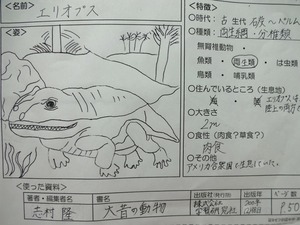 <名前>
エリオプス
<姿>
<特徴>
○時代：古生代石炭〜ペルム
○種類：両生綱・分椎類
無脊椎動物・
魚類・両生類・は虫類
鳥類・哺乳類
○住んでいるところ（生息地）
○大きさ
2m
○食性（肉食？草食？）
肉食
○その他
アメリカ合衆国に生息していた。
<使った資料>
著者・編集者名
書名
出版社
出版年
ページ数
志村 隆
大昔の動物
株式会社
学習研究社
P50